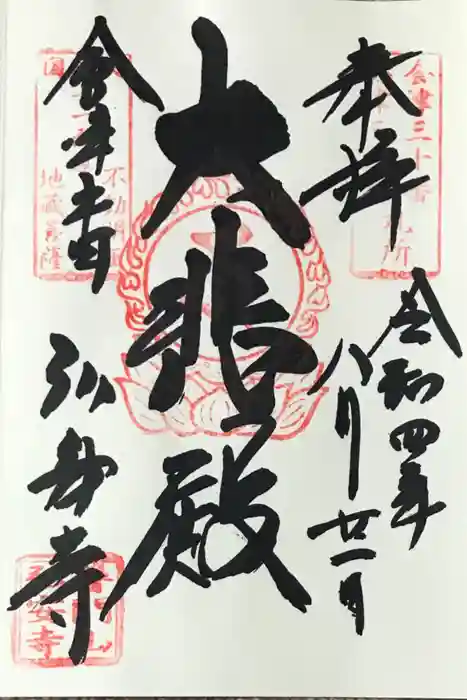 奉拝
令和四年
八月廿一日
大悲殿
会津中田
弘安寺
会津三十
札所
不動
地蔵菩薩
安寺